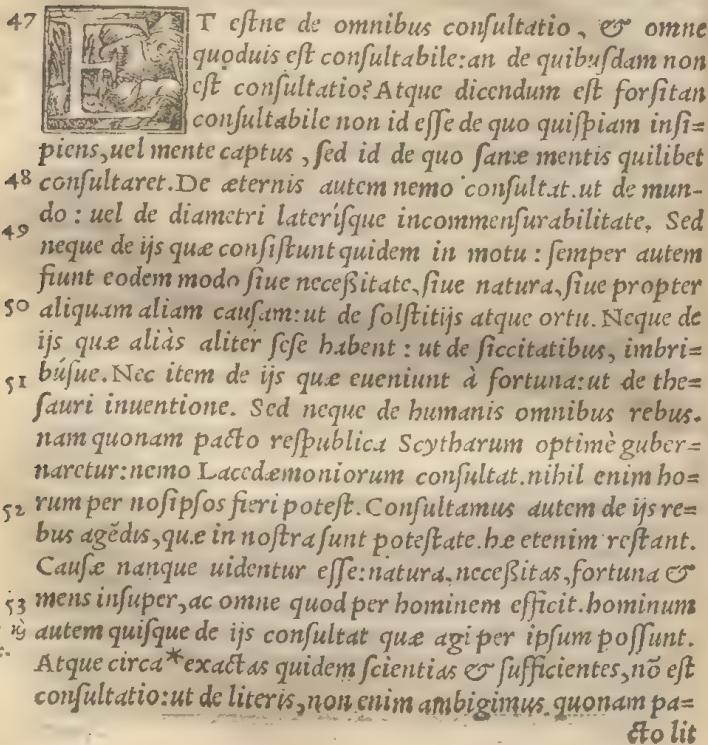 47 ET eſtne de omnibus conſultatio, & omne
quoduis eſt conſultabile: an de quibuſdam non
eſt conſultatio? Atque dicendum eſt forſitan
conſultabile non id eſſe de quo quiſpiam inſi=
piens, uel mente captus, ſed id de quo ſanæ mentis quilibet
48 conſultaret. De æternis autem nemo conſultat. ut de mun-
do: uel de diametri lateríſque incommenſurabilitate. Sed
49 neque de ijs quæ conſiſtunt quidem in motu: ſemper autem
fiunt eodem modo ſiue neceßitate, ſiue natura, ſiue propter
50 aliquam aliam cauſam: ut de ſolſtitijs atque ortu. Neque de
ijs quæ aliàs aliter ſeſe habent: ut de ſiccitatibus, imbri=
51 búſue. Nec item de ijs quæ eueniunt à fortuna: ut de the=
ſauri inuentione. Sed neque de humanis omnibus rebus.
nam quonam pacto reſpublica Scytharum optimè guber=
naretur: nemo Lacedæmoniorum conſultat. nihil enim ho=
52 rum per noſipſos fieri poteſt. Conſultamus autem de ijs re=
bus agēdis, quæ in noſtra ſunt poteſtate. hæ etenim reſtant.
Cauſæ nanque uidentur eſſe: natura, neceßitas, fortuna &
53 mens inſuper, ac omne quod per hominem efficit. hominum
autem quiſque de ijs conſultat quæ agi per ipſum poſſunt.
Atque circa * exactas quidem ſcientias & ſufficientes, nō eſt
conſultatio: ut de literis, non enim ambigimus quonam pa=
cto lit